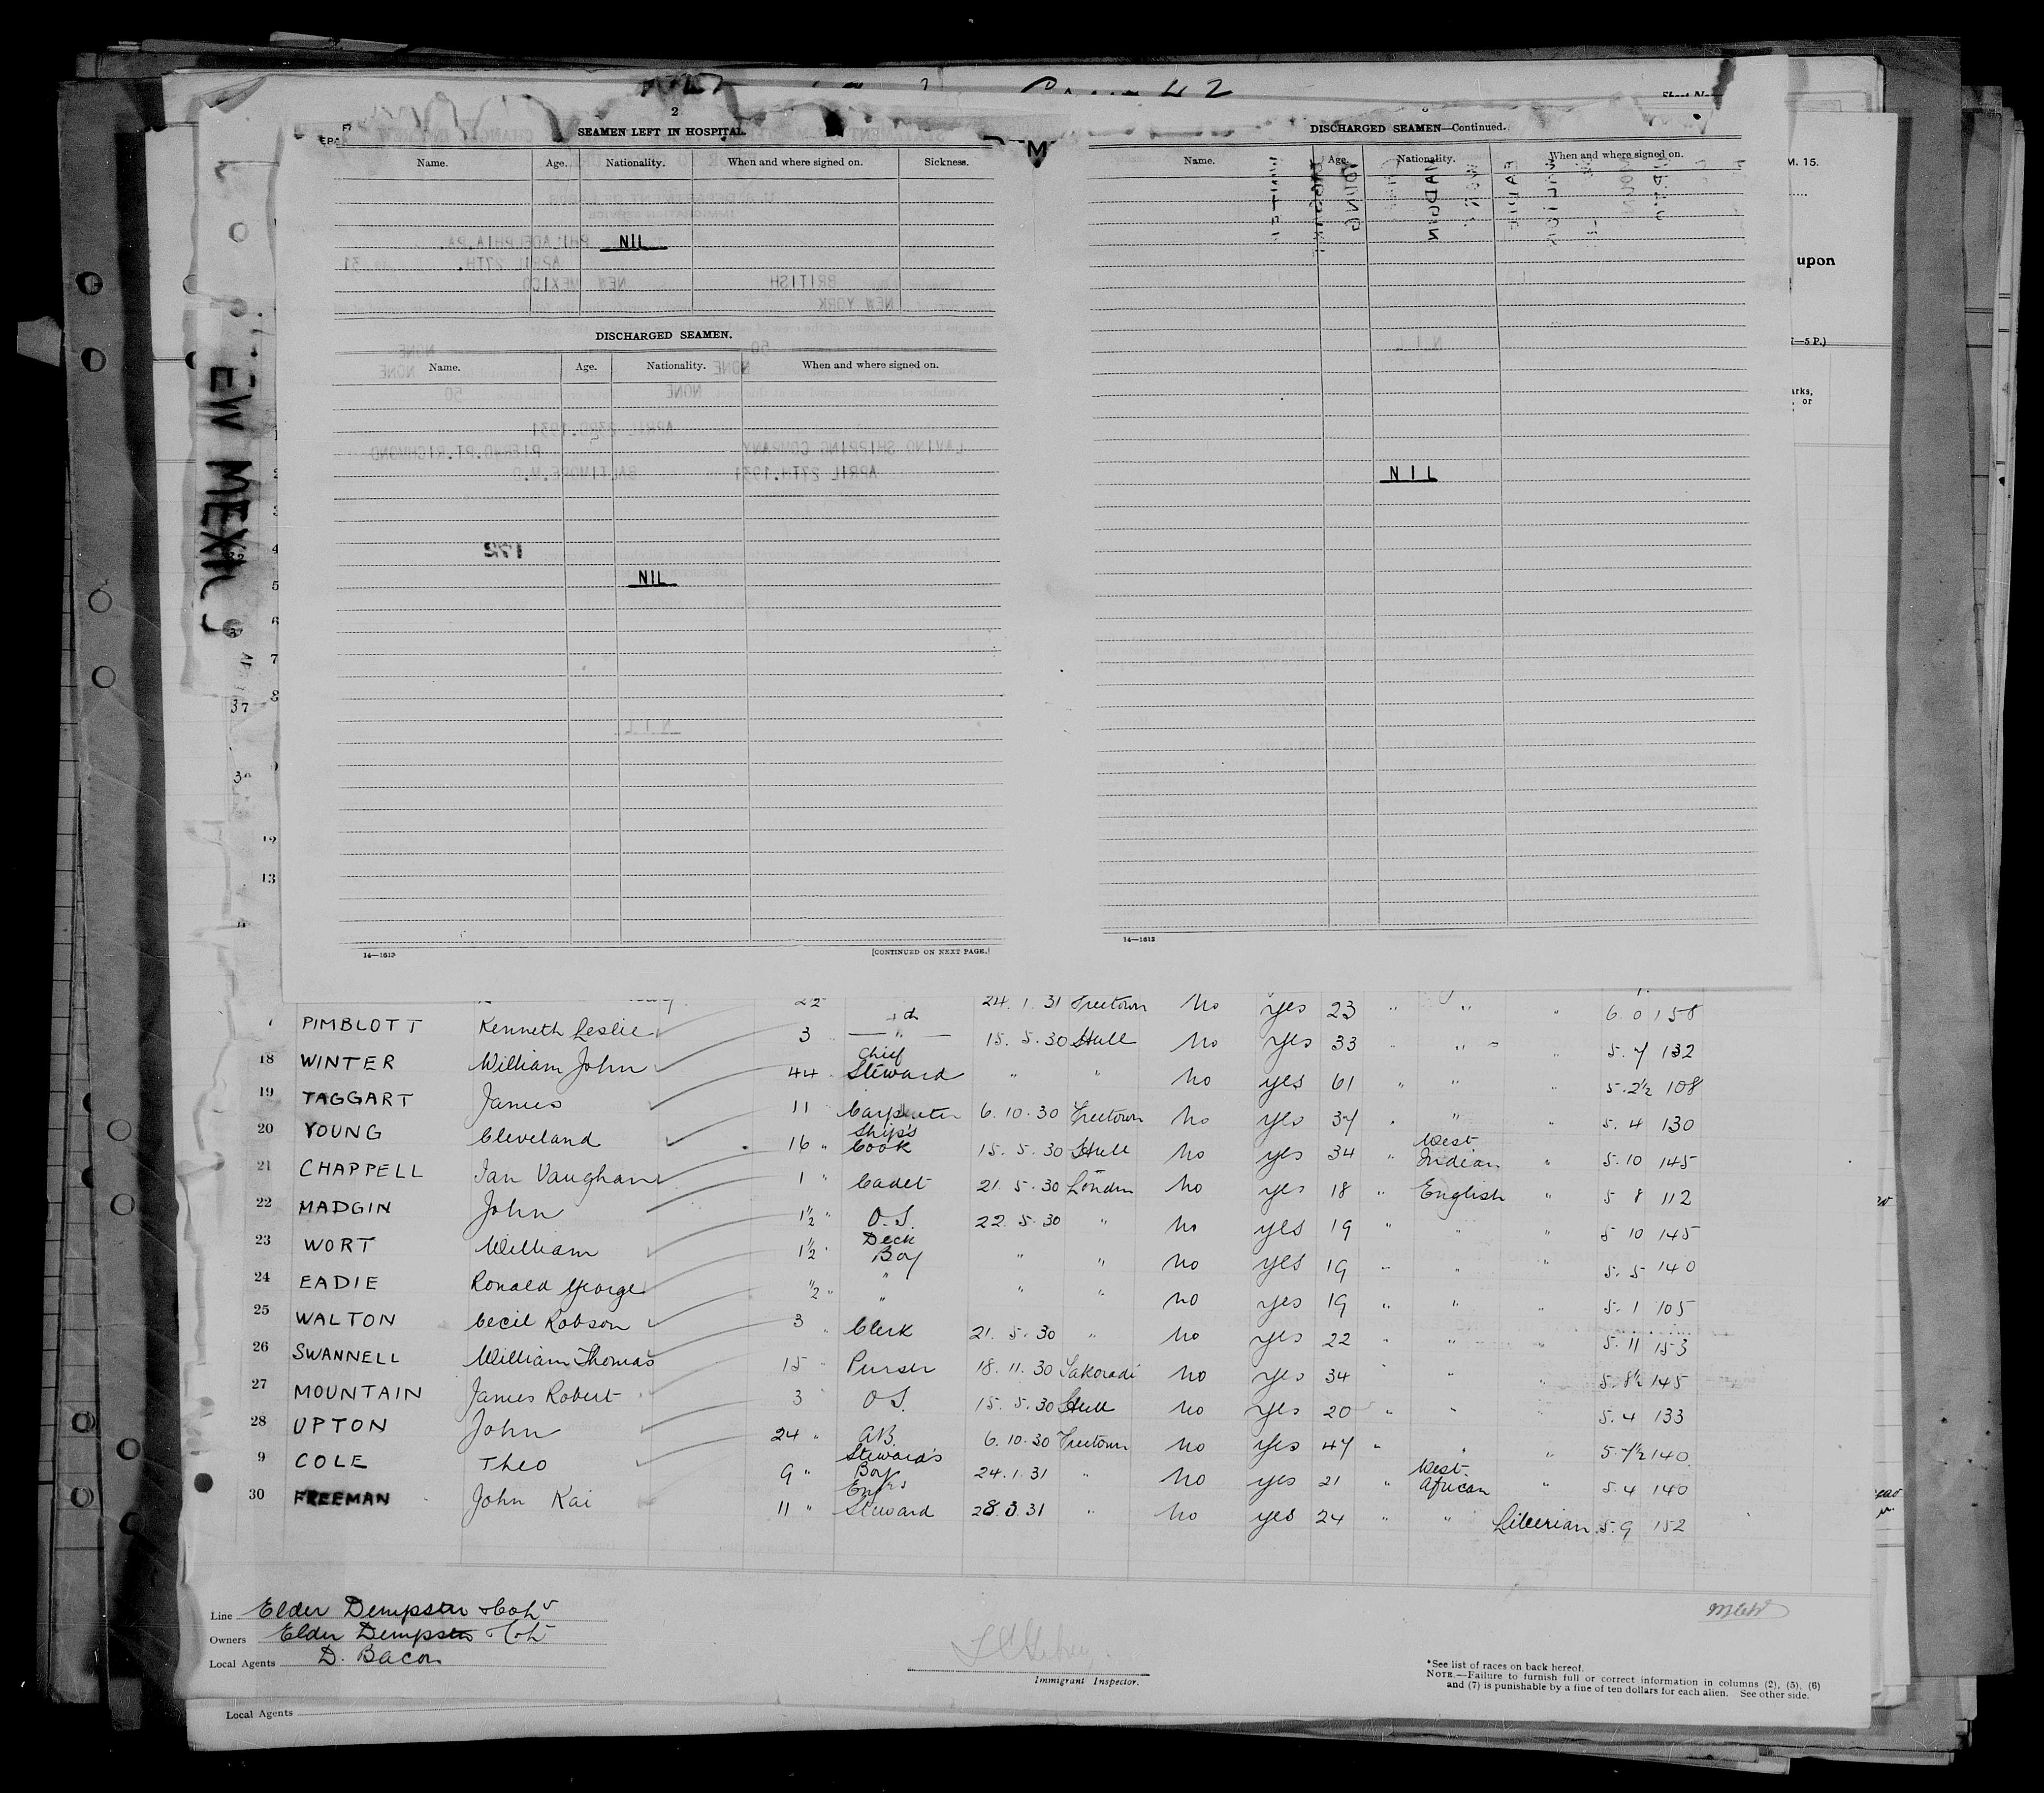 2
SEAMEN LEFT IN HOSPITAL.
Name. Age. Nationality. When and where signed on. Sickness.
NIL
DISCHARGED SEAMEN.
Name. Age. Nationality. When and where signed on.
172
NIL
14—1613
[CONTINUED ON NEXT PAGE.]
DISCHARGED SEAMEN—Continued.
Name. Age. Nationality. When and where signed on.
NIL
14—1613
M. 15.
upon
EW MEXIC
22 24. 1. 31 Freetown No yes 23 " " " 6. 0 158
PIMBLOTT Kenneth Leslie 3 " 15. 5. 30 Hull No yes 33 " " " 5. 7 132
18 WINTER William John 44 Chief Steward " " No yes 61 " " " 5. 2½ 108
19 TAGGART James 11 " Carpenter 6. 10. 30 Freetown No yes 37 " " " 5. 4 130
20 YOUNG Cleveland 16 " Ship's Cook 15. 5. 30 Hull No yes 34 " West Indian " 5. 10 145
21 CHAPPELL Ian Vaughan 1 " Cadet 21. 5. 30 London No yes 18 " English " 5 8 112
22 MADGIN John 1½ " O.S. 22. 5. 30 " No yes 19 " " " 5 10 145
23 WORT William 1½ " Deck Boy " " No yes 19 " " " 5. 5 140
24 EADIE Ronald George ½ " " " " No yes 19 " " " 5. 1 105
25 WALTON Cecil Robson 3 " Clerk 21. 5. 30 " No yes 22 " " " 5. 11 153
26 SWANNELL William Thomas 15 " Purser 18. 11. 30 Takoradi No yes 34 " " " 5. 8½ 145
27 MOUNTAIN James Robert 3 O.S. 15. 5. 30 Hull No yes 20 " " " 5. 4 133
28 UPTON John 24 " A.B. 6. 10. 30 Freetown No yes 47 " " " 5. 7½ 140
9 COLE Theo 9 " Steward's Boy 24. 1. 31 " No yes 21 " West African " 5. 4 140
30 FREEMAN John Kai 11 " Engr's Steward 28. 3. 31 " No yes 24 " " Liberian 5. 9 152
Line Elder Dempster & Co Ld
Owners Elder Dempster & Co Ld
Local Agents D. Bacon
Immigrant Inspector.
*See list of races on back hereof.
NOTE.—Failure to furnish full or correct information in columns (2), (5), (6)
and (7) is punishable by a fine of ten dollars for each alien. See other side.
Local Agents